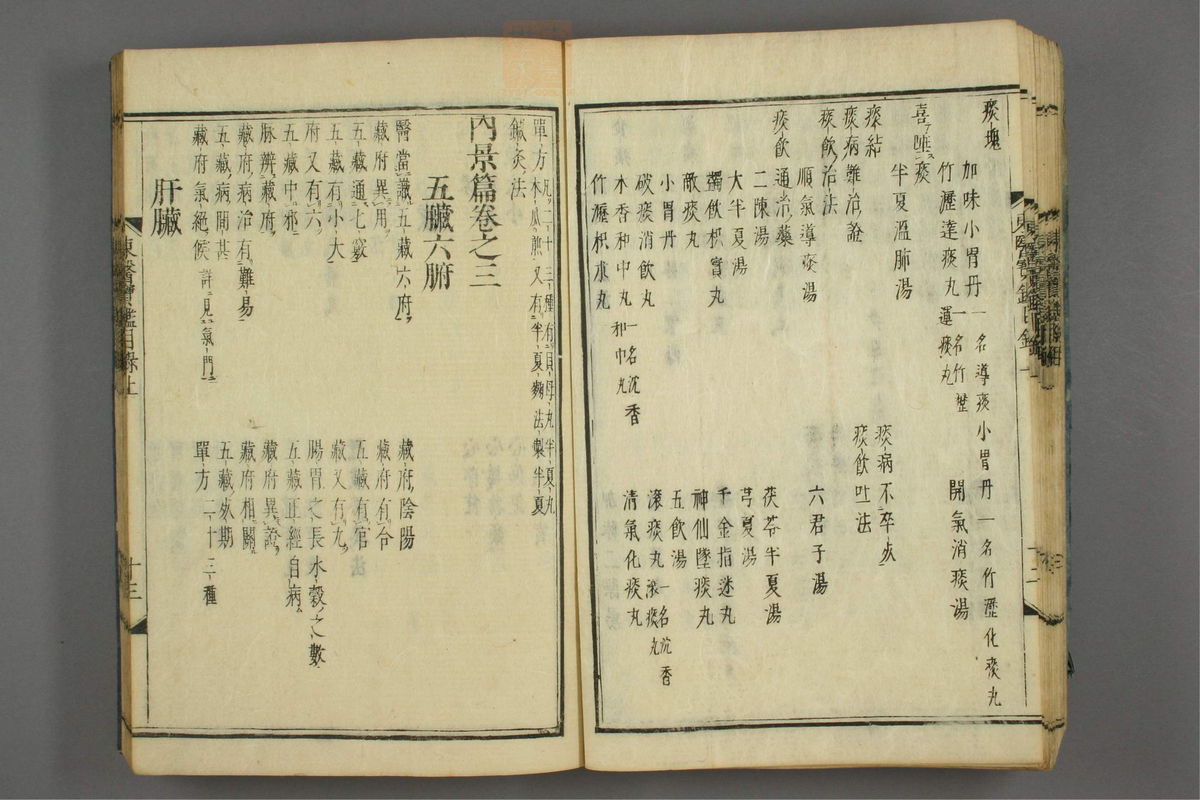 痰塊
加味小胃丹 一名導痰小胃丹 一名竹瀝化痰丸
竹瀝達痰丸 一名竹瀝運痰丸 開氣消痰湯
喜唾痰
半夏溫肺湯
痰結
痰病難治證 痰病不卒死
痰飲治法 痰飲吐法
順氣導痰湯 六君子湯
痰飲通治藥
二陳湯 茯苓半夏湯
大半夏湯 芎夏湯
蠲飲枳實丸 千金指迷丸
敵痰丸 神仙墜痰丸
小胃丹 五飲湯
破痰消飲丸 滚痰丸 一名沉香滚痰丸
木香和中丸 一名沉香和中丸 清氣化痰丸
竹瀝枳朮丸
東醫寶鑑目錄上
十三
單方 凡二十三種 有貝母丸半夏丸木瓜煎 又有半夏麴法製半夏
鍼灸法
內景篇卷之三
五臟六腑
醫當識五藏六府 藏府陰陽
藏府異用 藏府有合
五藏通七竅 五藏有官
五藏有小大 藏又有九
府又有六 腸胃之長水穀之數
五藏中邪 五藏正經自病
脉辨藏府 藏府異證
藏府病治有難易 藏府相關
五藏病間甚 五藏死期
藏府氣絕候 詳見氣門 單方 二十三種
肝臟